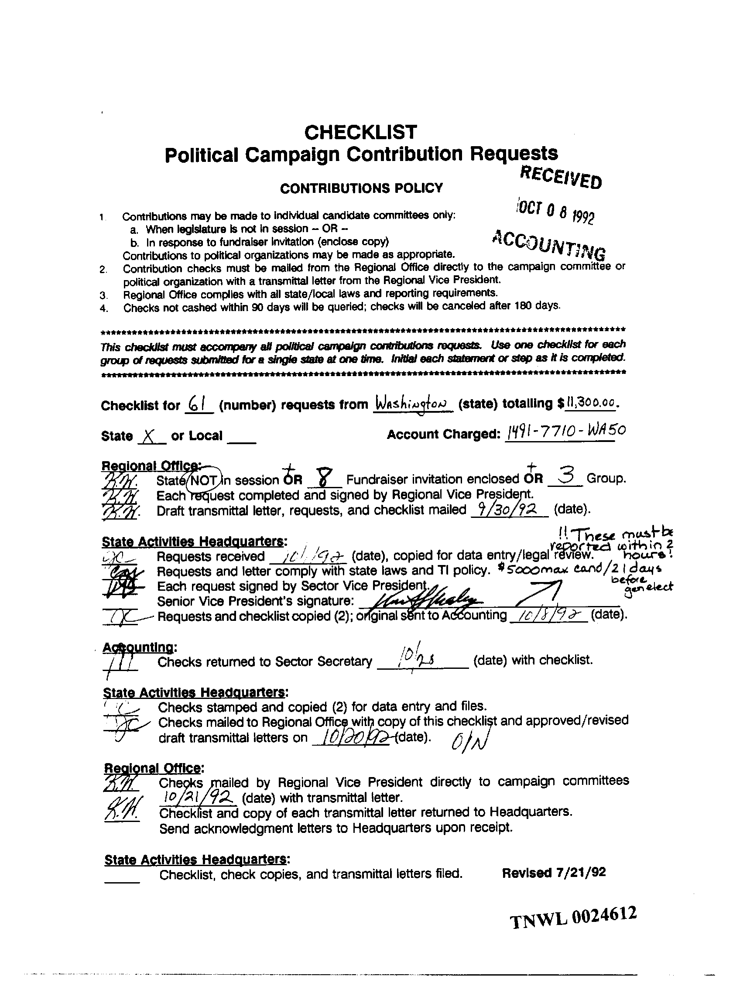 CHECKLIST
Political Campaign Contribution Requests
RECEIVED
CONTRIBUTIONS POLICY
OCT 08 1992
ACCOUNTING
1 Contributions may be made to individual candidate committees only:
a. When legislature is not in session -- OR --
b. In response to fundraiser invitation (enclose copy)
Contributions to political organizations may be made as appropriate.
2. Contribution checks must be mailed from the Regional Office directly to the campaign committee or
political organization with a transmittal letter from the Regional Vice President.
3. Regional Office complies with all state/local laws and reporting requirements.
4. Checks not cashed within 90 days will be queried; checks will be canceled after 180 days.
This checklist must accompany all political campaign contributions requests. Use one checklist for each
group of requests submitted for a single state at one time. Initial each statement or step as it is completed.
Checklist for 61 (number) requests from Washington (state) totalling $11,300.00.
State X or Local ____ Account Charged: 1491-7710-WA50
Regional Office:
K.H. State NOT in session + OR 8 Fundraiser invitation enclosed + OR 3 Group.
K.H. Each request completed and signed by Regional Vice President.
K.H. Draft transmittal letter, requests, and checklist mailed 9/30/92 (date).
!! These must be
reported within 2
hours!
State Activities Headquarters:
Requests received 10/1/92 (date), copied for data entry/legal review.
Requests and letter comply with state laws and TI policy. $5000 max cand/21 days
before
gen elect
Each request signed by Sector Vice President.
Senior Vice President's signature:
Requests and checklist copied (2); original sent to Accounting 10/8/92 (date).
Accounting:
Checks returned to Sector Secretary 10/28 (date) with checklist.
State Activities Headquarters:
Checks stamped and copied (2) for data entry and files.
Checks mailed to Regional Office with copy of this checklist and approved/revised
draft transmittal letters on 10/20/92 (date). O/N
Regional Office:
K.H. Checks mailed by Regional Vice President directly to campaign committees
10/21/92 (date) with transmittal letter.
K.H. Checklist and copy of each transmittal letter returned to Headquarters.
Send acknowledgment letters to Headquarters upon receipt.
State Activities Headquarters:
____ Checklist, check copies, and transmittal letters filed. Revised 7/21/92
TNWL 0024612